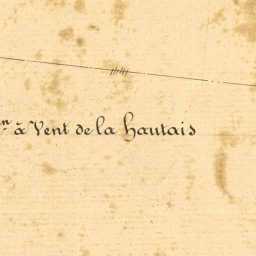 n à Vent de la hautais